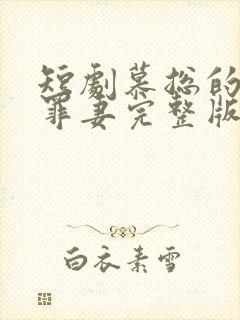 短劇慕總的
罪妻完整版
白衣素雪